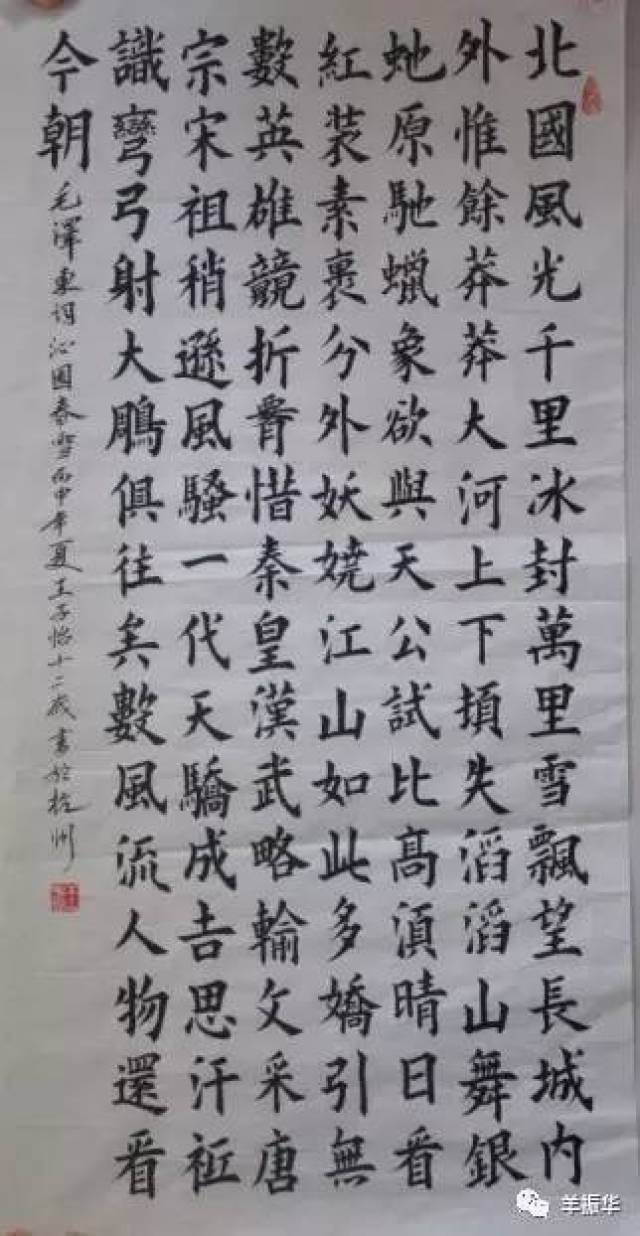 北國風光千里冰封萬里雪飄望長城内
外惟餘莽莽大河上下頓失滔滔山舞銀
虵原馳蠟象欲與天公試比高湏晴日看
紅装素裹分外妖嬈江山如此多嬌引無
數英雄競折腰惜秦皇漢武略輸文采唐
宗宋祖稍遜風騷一代天驕成吉思汗祗
識彎弓射大鵰俱往矣數風流人物還看
今朝 毛澤東詞沁園春雪丙申年夏王子怡十二歲書於杭州
羊振华